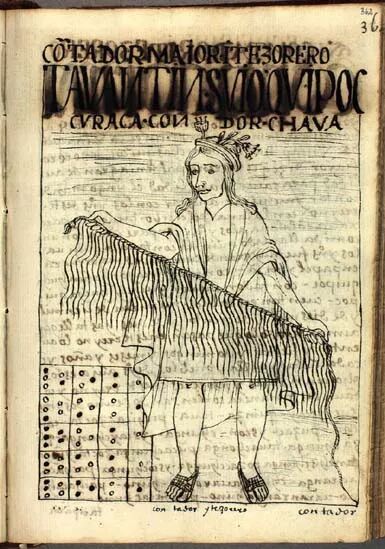 362
36
CÕTADOR·MAIOR·I TEZORERO
TAVANTIN·SVIO·QVIPOC
CVRACA·CON DOR·CHAVA
con tador y tezorero
con tador